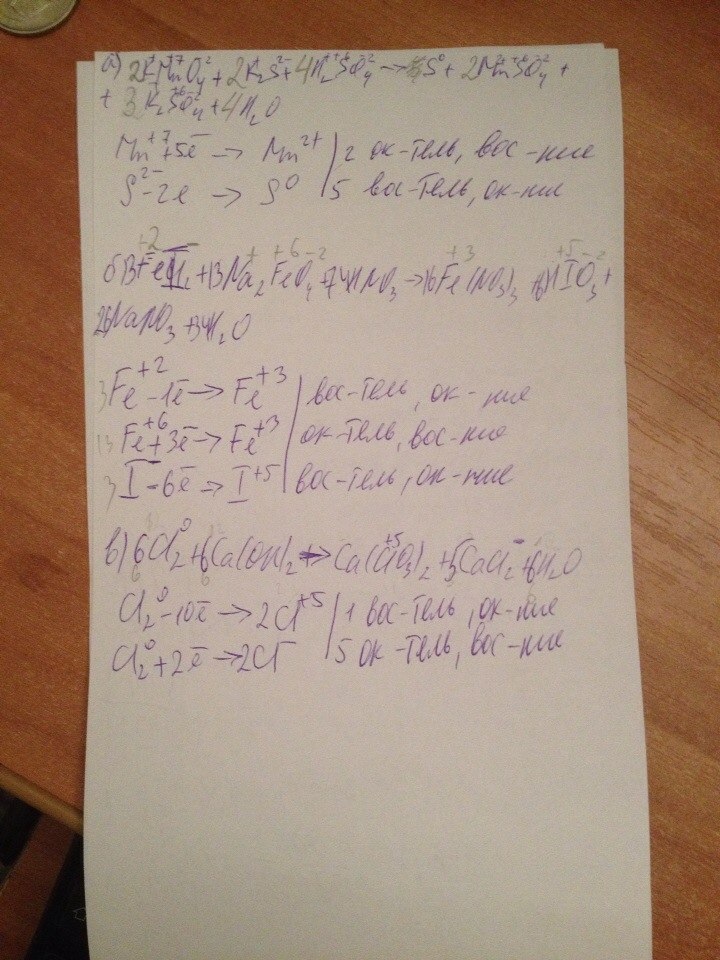 а) 2KMnO4 + 2K2S + 4H2SO4 → S + 2MnSO4 +
+ 3K2SO4 + 4H2O
Mn+7 +5e → Mn2+ | 2 ок-тель, вос-ние
S2- -2e → S0 | 5 вос-тель, ок-ние
+ 13Na2FeO4 + 74HNO3 → 16Fe(NO3)3 + HIO3 +
26NaNO3 + 34H2O
Fe+2 -1e → Fe+3 | вос-тель, ок-ние
Fe+6 +3e → Fe+3 | ок-тель, вос-ние
I- -6e → I+5 | вос-тель, ок-ние
в) 6Cl2 + 6Ca(OH)2 → Ca(ClO3)2 + 5CaCl2 + 6H2O
Cl2 0 -10e → 2Cl+5 | 1 вос-тель, ок-ние
Cl2 0 +2e → 2Cl- | 5 ок-тель, вос-ние